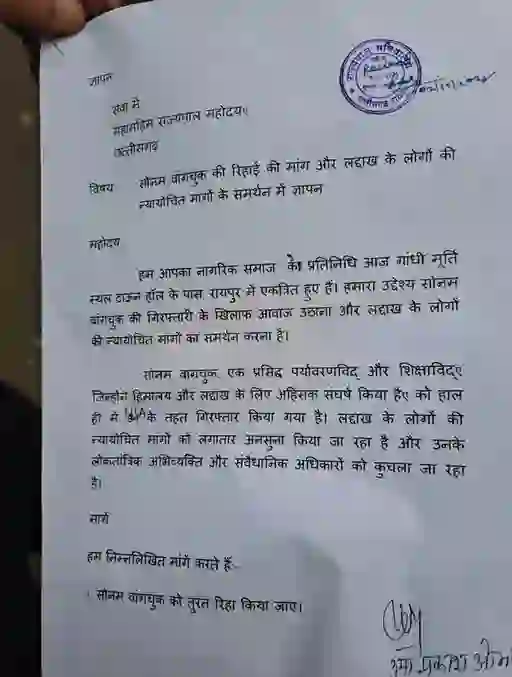 ज्ञापन
सेवा में
महामहिम राज्यपाल महोदयए
छत्तीसगढ़
विषय सोनम वांगचुक की रिहाई की मांग और लद्दाख के लोगों की
न्यायोचित मांगों के समर्थन में ज्ञापन
महोदय
हम आपका नागरिक समाज के प्रतिनिधि आज गांधी मूर्ति
स्थल टाऊन हॉल के पास रायपुर में एकत्रित हुए हैं। हमारा उद्देश्य सोनम
वांगचुक की गिरफ्तारी के खिलाफ आवाज उठाना और लद्दाख के लोगों
की न्यायोचित मांगों का समर्थन करना है।
सोनम वांगचुक एक प्रसिद्ध पर्यावरणविद् और शिक्षाविद्ए
जिन्होंने हिमालय और लद्दाख के लिए अहिंसक संघर्ष किया हैए को हाल
ही में के तहत गिरफ्तार किया गया है। लद्दाख के लोगों की
न्यायोचित मांगों को लगातार अनसुना किया जा रहा है और उनके
लोकतांत्रिक अभिव्यक्ति और संवैधानिक अधिकारों को कुचला जा रहा
है।
मांगें
हम निम्नलिखित मांगें करते हैं:-
1 सोनम वांगचुक को तुरंत रिहा किया जाए।